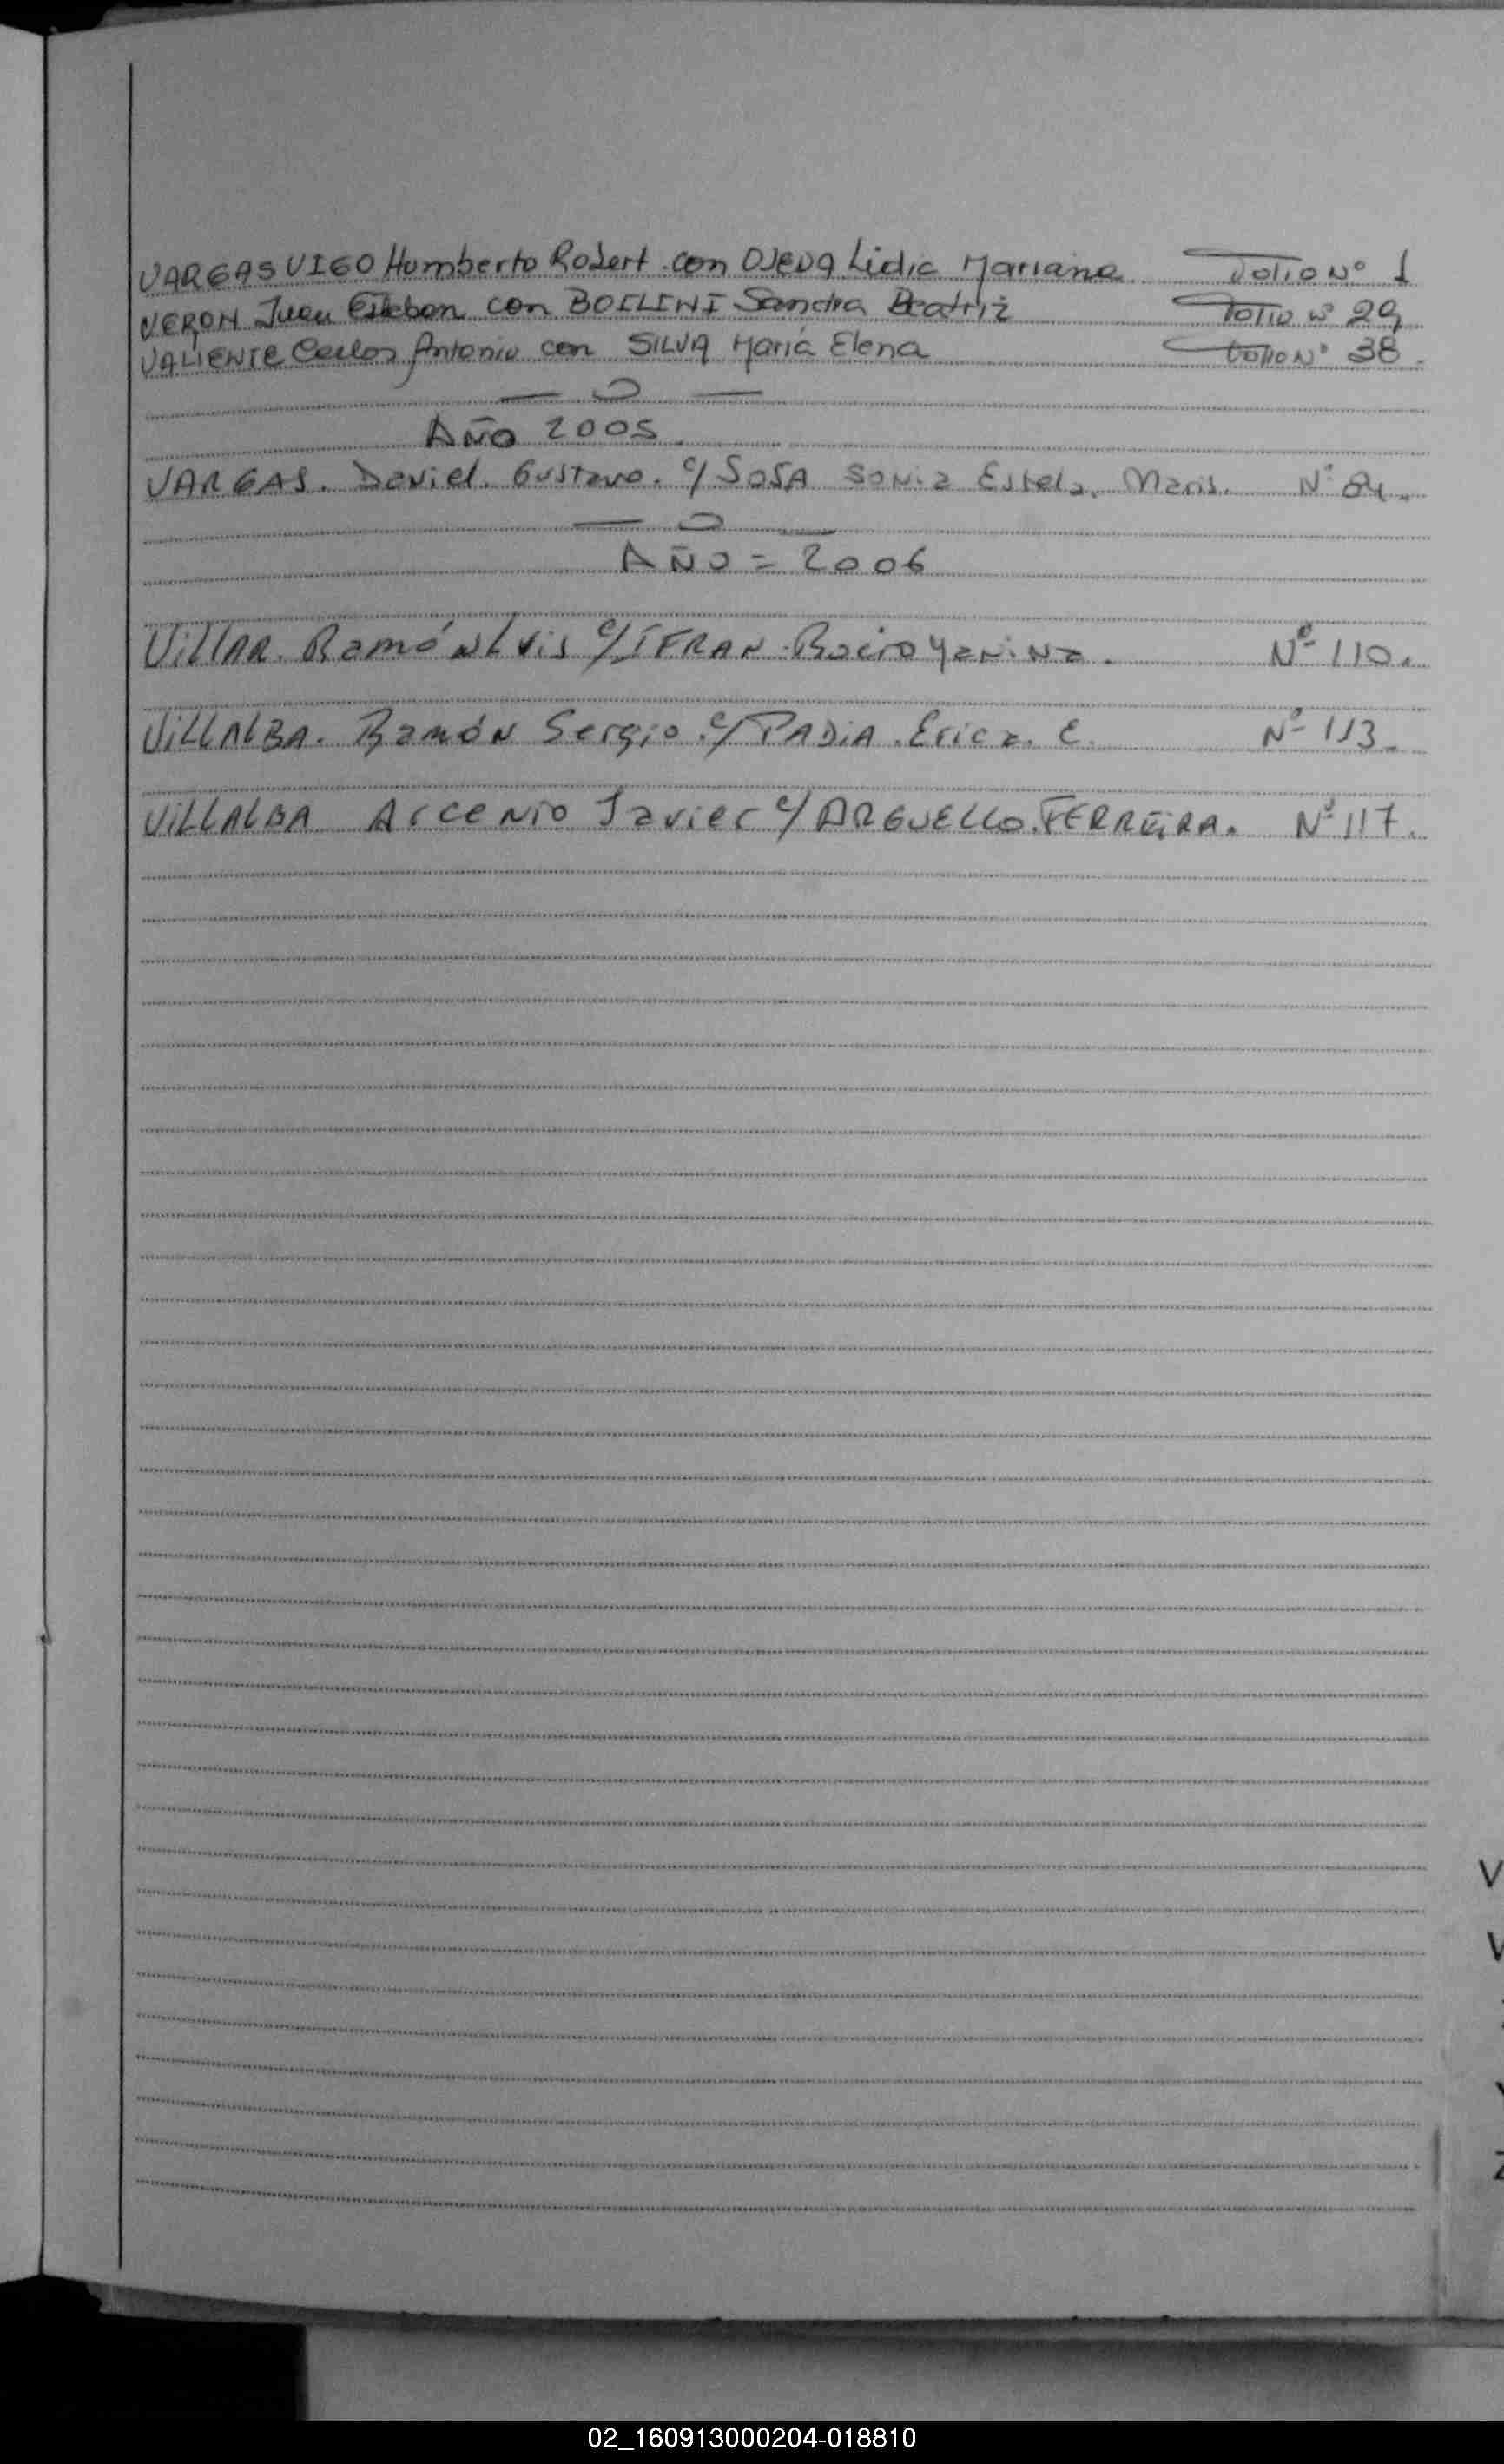 VARGAS VIGO Humberto Robert con OJEDA Lidia Mariana Folio Nº 1
VERON Juan Esteban con BOILINI Sandra Beatriz Folio Nº 29
VALIENTE Carlos Antonio con SILVA María Elena Folio Nº 38
— o —
Año 2005
VARGAS. Daniel. Gustavo. c/ SOSA Sonia Estela. Maris. Nº 84.
— o —
AÑO = 2006
VillAR. Ramón Luis c/ IFRAN. Rocio Yanina. Nº 110.
VillALBA. Ramón Sergio. c/ PADiA. Erica. E. Nº 113.
VillALBA Arcenio Javier c/ ARGUELLO. FERREiRA. Nº 117.
V
V
02_160913000204-018810